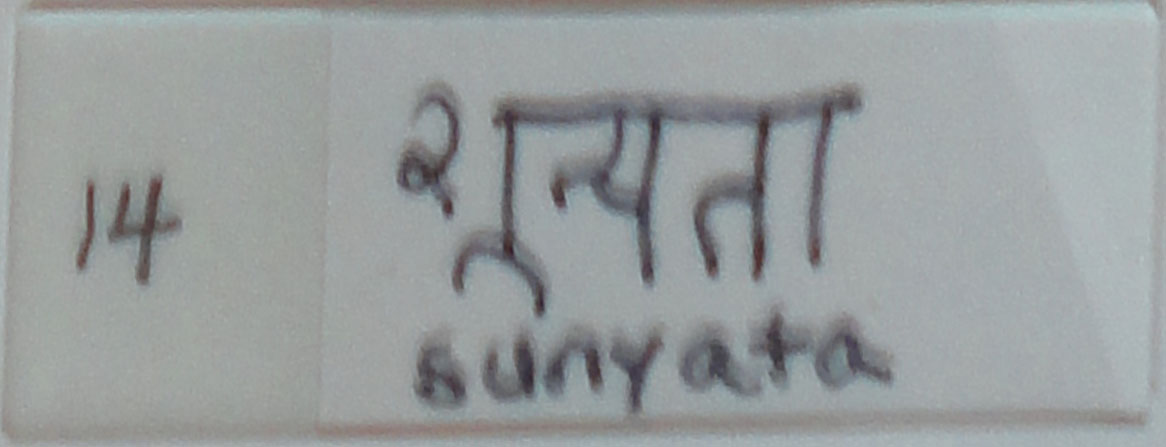 14 शून्यता
sunyata